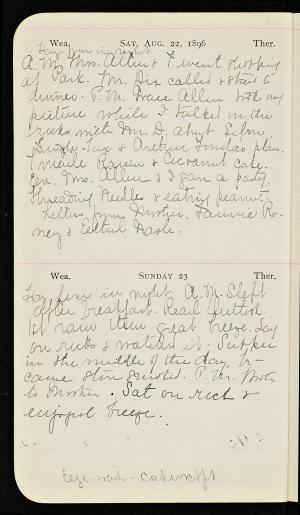 Wea. SAT, AUG. 22, 1896 Ther.
in night
A.M. Mrs. Allen & I went shopping
at Park. Mr. Dix called & staid to
dinner. P.M. Grace Allen took my
picture while I talked on the
rocks with Mr. D. about
Single-Tax & Arthur plan.
made Raisin & Cocoanut cake.
Eve. Mrs. Allen & I gave a party.
Threading Needles & eating peanuts.
Letters from Mother, Fannie Ro-
ney &
Wea. SUNDAY 23 Ther.
in night. A.M. Slept
after breakfast. Read
1st rain then great breeze. Lay
on rocks & watched it. Supper
in the middle of the day, be-
came storm P.M. Wrote
to Mother. Sat on rocks &
enjoyed breeze.
Eye-wash - cake